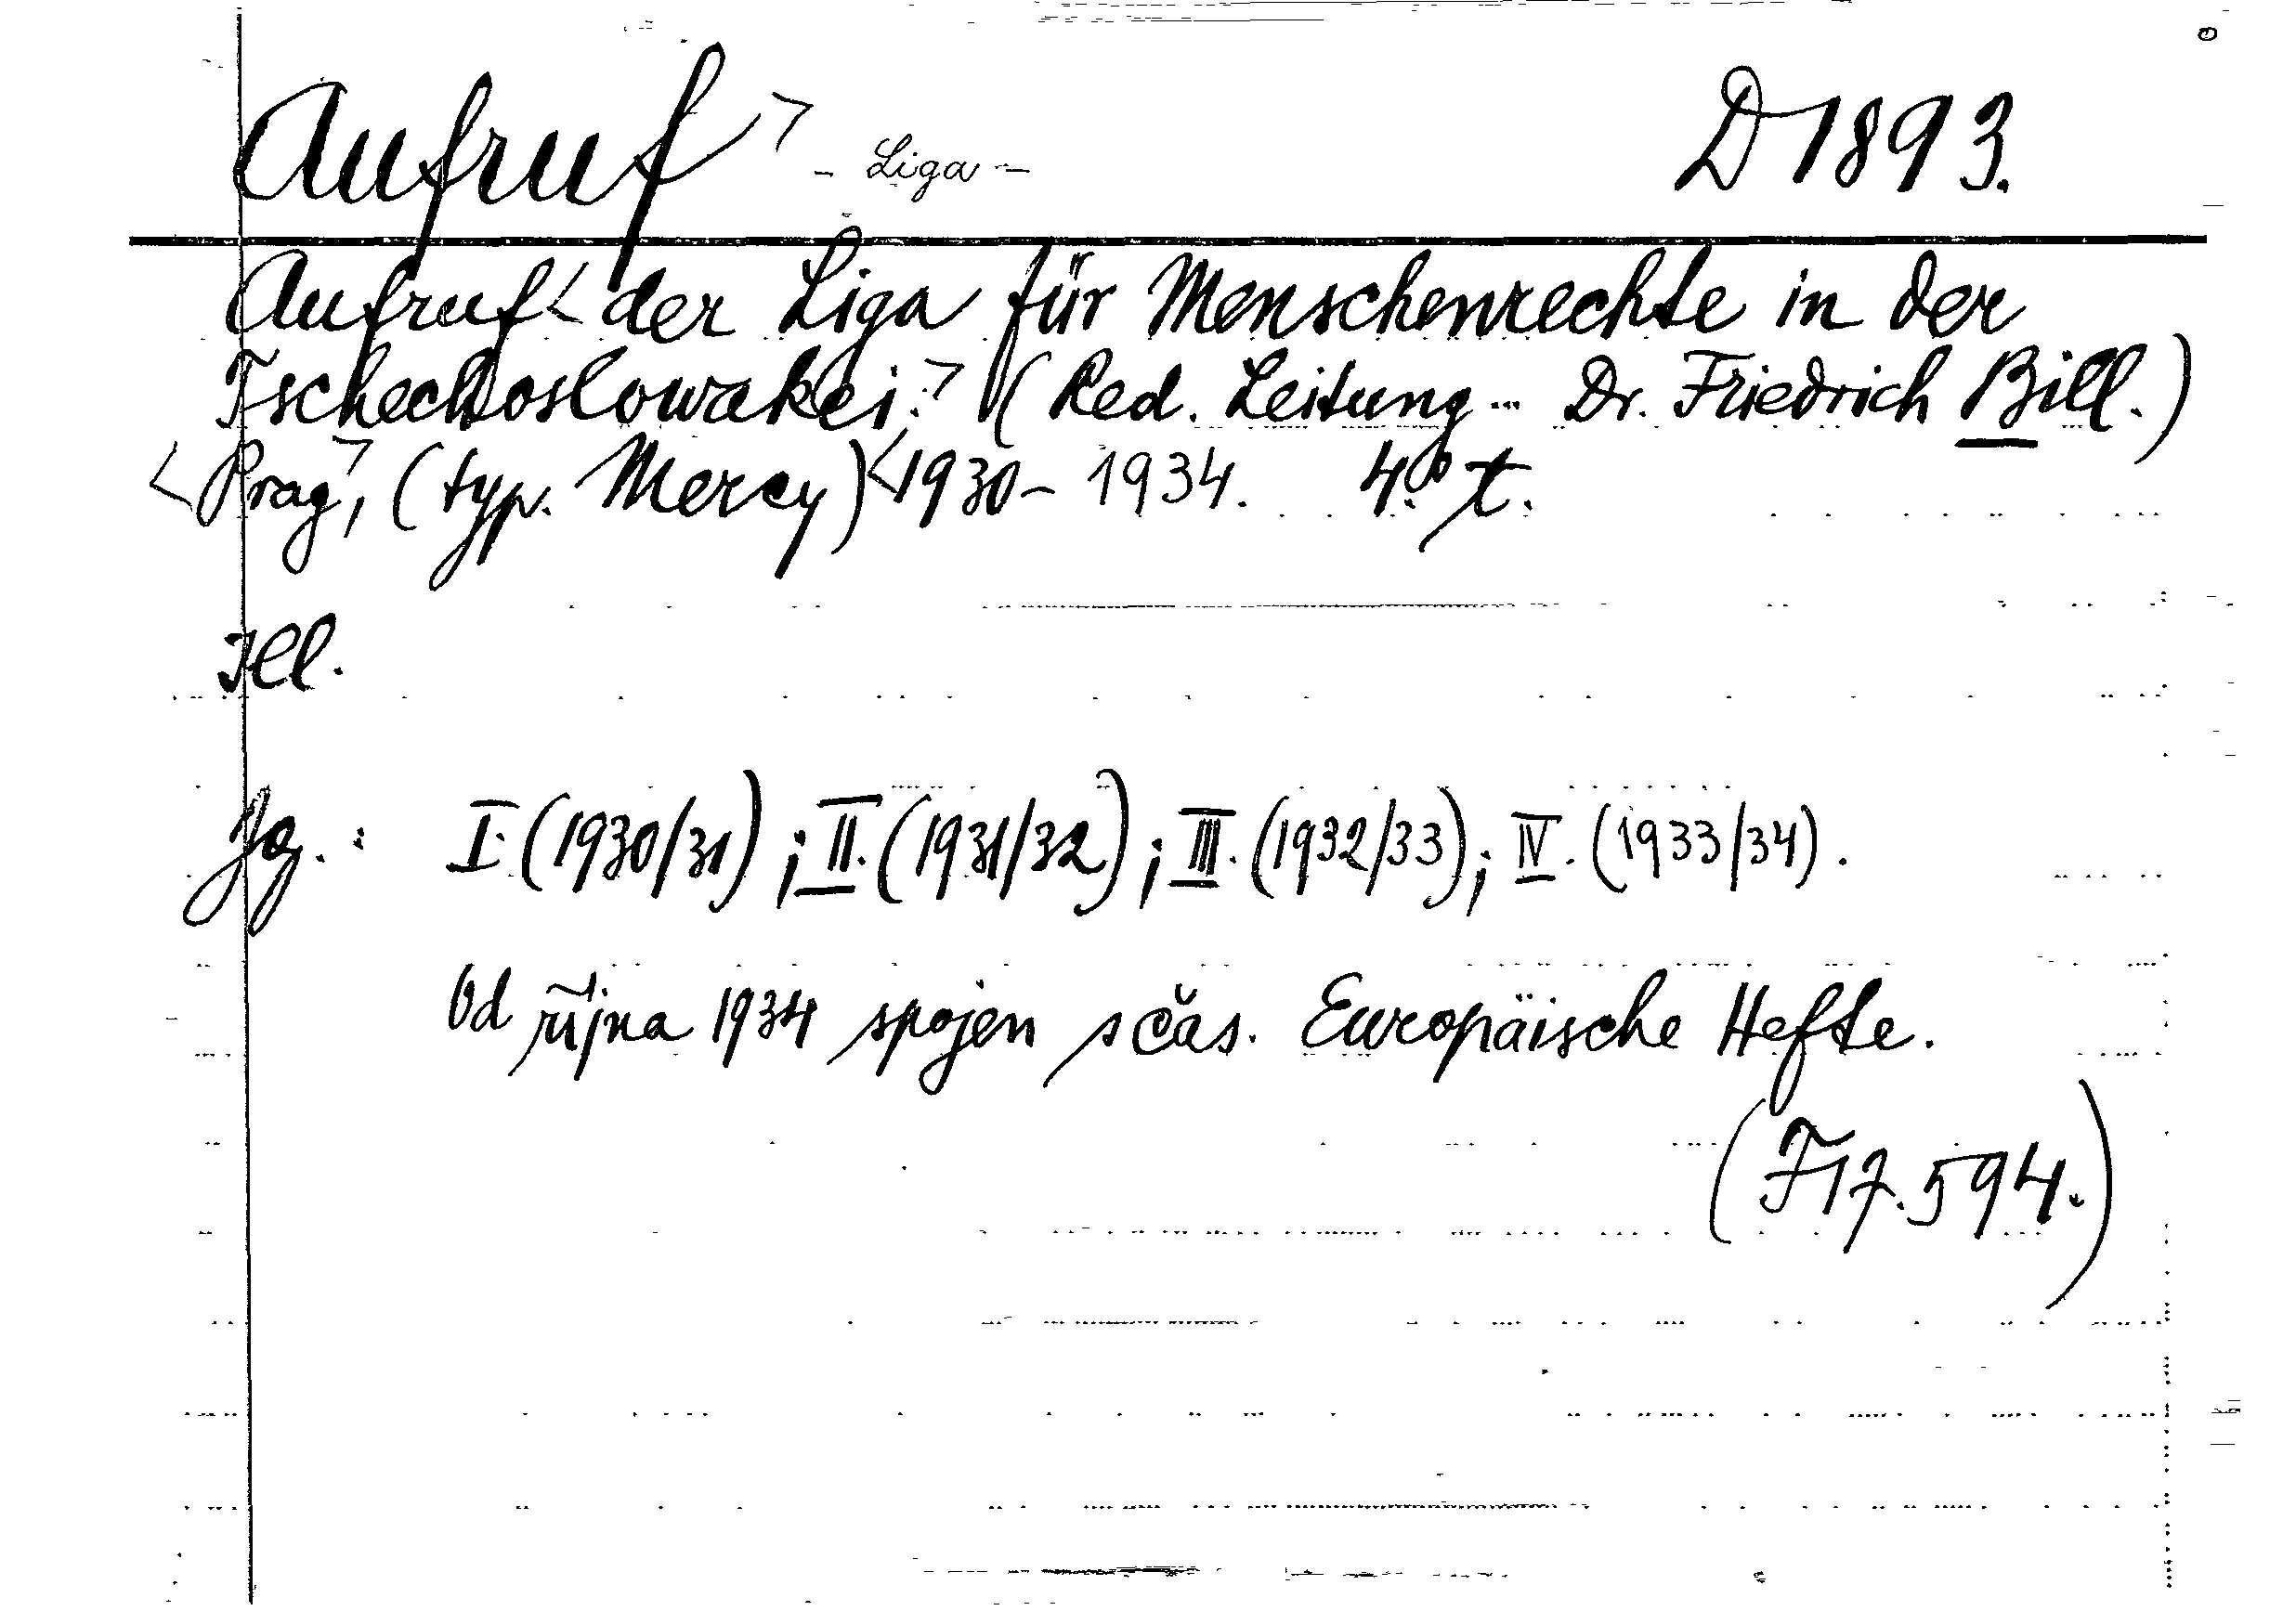 Aufruf> - Liga - D 1893.
Aufruf< der Liga für Menschenrechte in der
Tschechoslowakei.> (Red. Leitung ... Dr. Friedrich Bill.)
<Prag>, (typ. Mercy) <1930 - 1934. 4.° t.
Ill.
Jg. : I. (1930/31) ; II. (1931/32) ; III. (1932/33) ; IV. (1933/34) .
Od října 1934 spojen s čas. Europäische Hefte.
(F 17.594.)